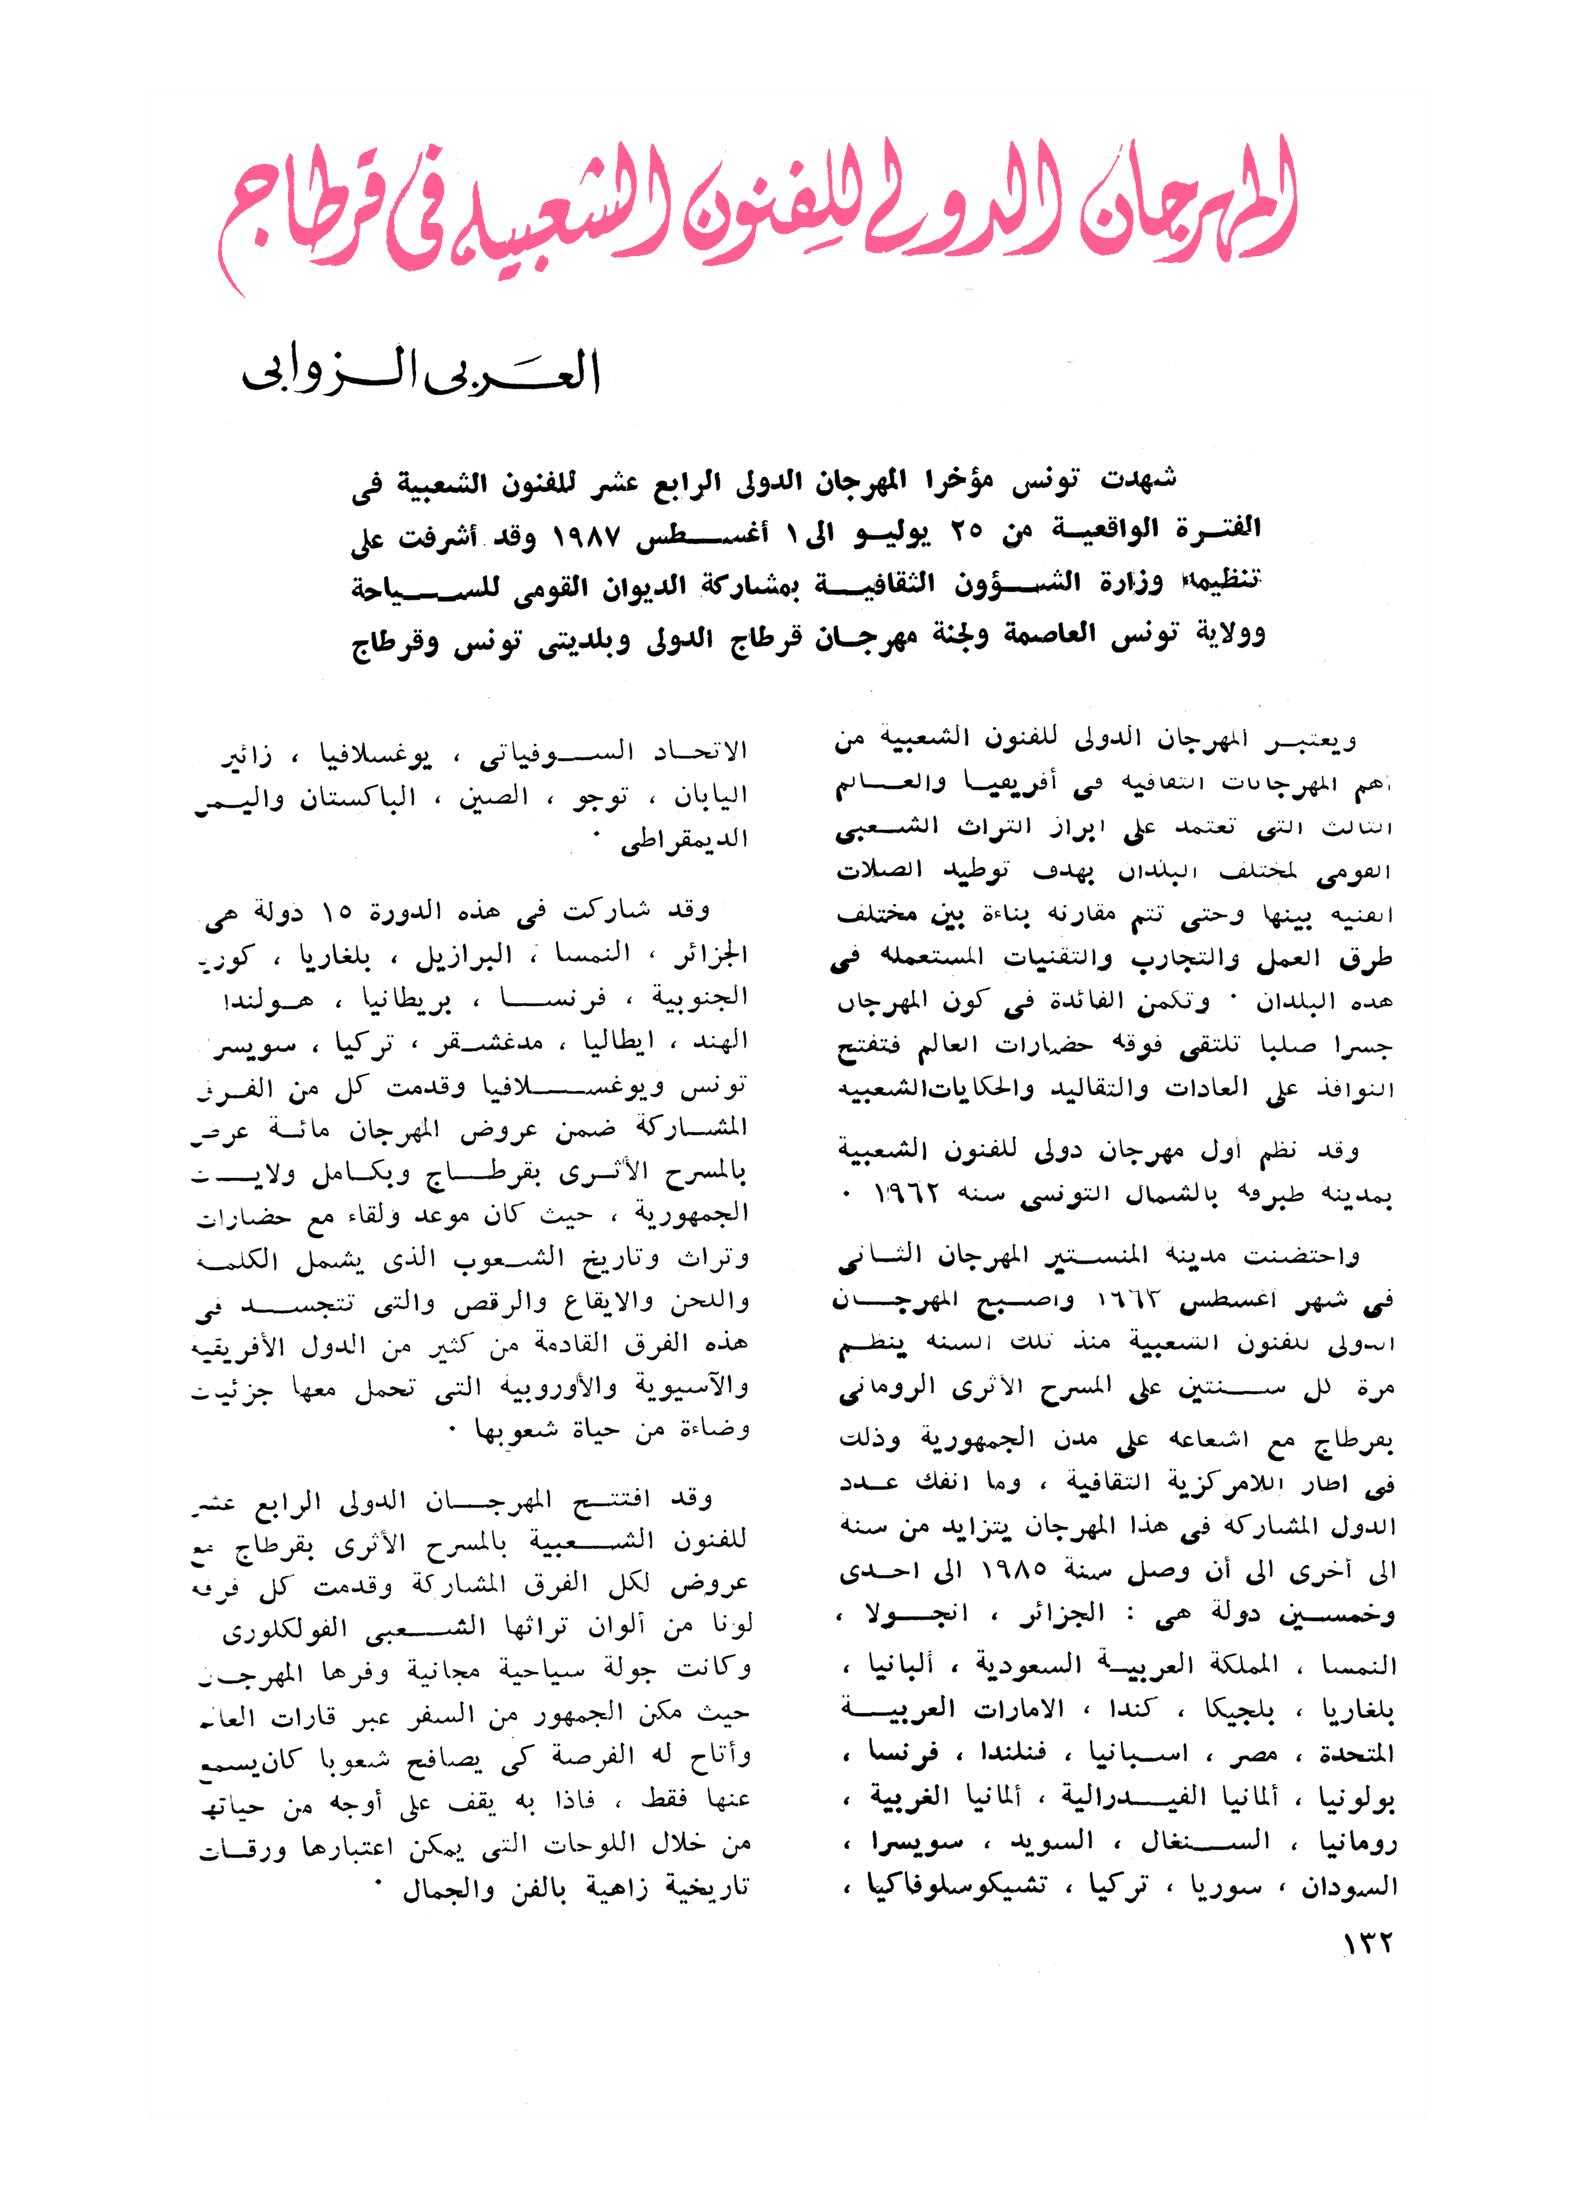 المهرجان الدولى للفنون الشعبيه فى قرطاج
العربى الزوابى
شهدت تونس مؤخرا المهرجان الدولى الرابع عشر للفنون الشعبية فى
الفترة الواقعية من ٢٥ يوليو الى ١ أغسطس ١٩٨٧ وقد أشرفت على
تنظيمه وزارة الشؤون الثقافية بمشاركة الديوان القومى للسياحة
وولاية تونس العاصمة ولجنة مهرجان قرطاج الدولى وبلديتى تونس وقرطاج
ويعتبر المهرجان الدولى للفنون الشعبية من
أهم المهرجانات الثقافيه فى أفريقيا والعالم
الثالث التى تعتمد على ابراز التراث الشعبى
القومى لمختلف البلدان بهدف توطيد الصلات
الفنيه بينها وحتى تتم مقارنه بناءة بين مختلف
طرق العمل والتجارب والتقنيات المستعمله فى
هده البلدان ٠ وتكمن الفائدة فى كون المهرجان
جسرا صلبا تلتقى فوقه حضارات العالم فتفتح
النوافذ على العادات والتقاليد والحكايات الشعبيه
وقد نظم أول مهرجان دولى للفنون الشعبية
بمدينه طبرقه بالشمال التونسى سنه ١٩٦٢ ٠
واحتضنت مدينة المنستير المهرجان الثانى
فى شهر أغسطس ١٦٦٣ واصبح المهرجان
الدولى للفنون الشعبية منذ تلك السنه ينظم
مرة كل سنتين على المسرح الأثرى الرومانى
بقرطاج مع اشعاعه على مدن الجمهورية وذلك
فى اطار اللامركزية الثقافية ، وما انفك عدد
الدول المشاركه فى هذا المهرجان يتزايد من سنة
الى أخرى الى أن وصل سنة ١٩٨٥ الى احدى
وخمسين دولة هى : الجزائر ، انجولا ،
النمسا ، المملكة العربية السعودية ، ألبانيا ،
بلغاريا ، بلجيكا ، كندا ، الامارات العربية
المتحدة ، مصر ، اسبانيا ، فنلندا ، فرنسا ،
بولونيا ، ألمانيا الفيدرالية ، ألمانيا الغربية ،
رومانيا ، السنغال ، السويد ، سويسرا ،
السودان ، سوريا ، تركيا ، تشيكوسلوفاكيا ،
الاتحاد السوفياتى ، يوغسلافيا ، زائير
اليابان ، توجو ، الصين ، الباكستان واليمن
الديمقراطى ٠
وقد شاركت فى هذه الدورة ١٥ دولة هى
الجزائر ، النمسا ، البرازيل ، بلغاريا ، كوريا
الجنوبية ، فرنسا ، بريطانيا ، هولندا
الهند ، ايطاليا ، مدغشقر ، تركيا ، سويسرا
تونس ويوغسلافيا وقدمت كل من الفرق
المشاركة ضمن عروض المهرجان مائة عرض
بالمسرح الأثرى بقرطاج وبكامل ولايات
الجمهورية ، حيث كان موعد ولقاء مع حضارات
وتراث وتاريخ الشعوب الذى يشمل الكلمة
واللحن والايقاع والرقص والتى تتجسد فى
هذه الفرق القادمة من كثير من الدول الأفريقية
والآسيوية والأوروبية التى تحمل معها جزئيات
وضاءة من حياة شعوبها ٠
وقد افتتح المهرجان الدولى الرابع عشر
للفنون الشعبية بالمسرح الأثرى بقرطاج مع
عروض لكل الفرق المشاركة وقدمت كل فرقه
لونا من ألوان تراثها الشعبى الفولكلورى
وكانت جولة سياحية مجانية وفرها المهرجان
حيث مكن الجمهور من السفر عبر قارات العالم
وأتاح له الفرصة كى يصافح شعوبا كان يسمع
عنها فقط ، فاذا به يقف على أوجه من حياتها
من خلال اللوحات التى يمكن اعتبارها ورقات
تاريخية زاهية بالفن والجمال ٠
١٣٢